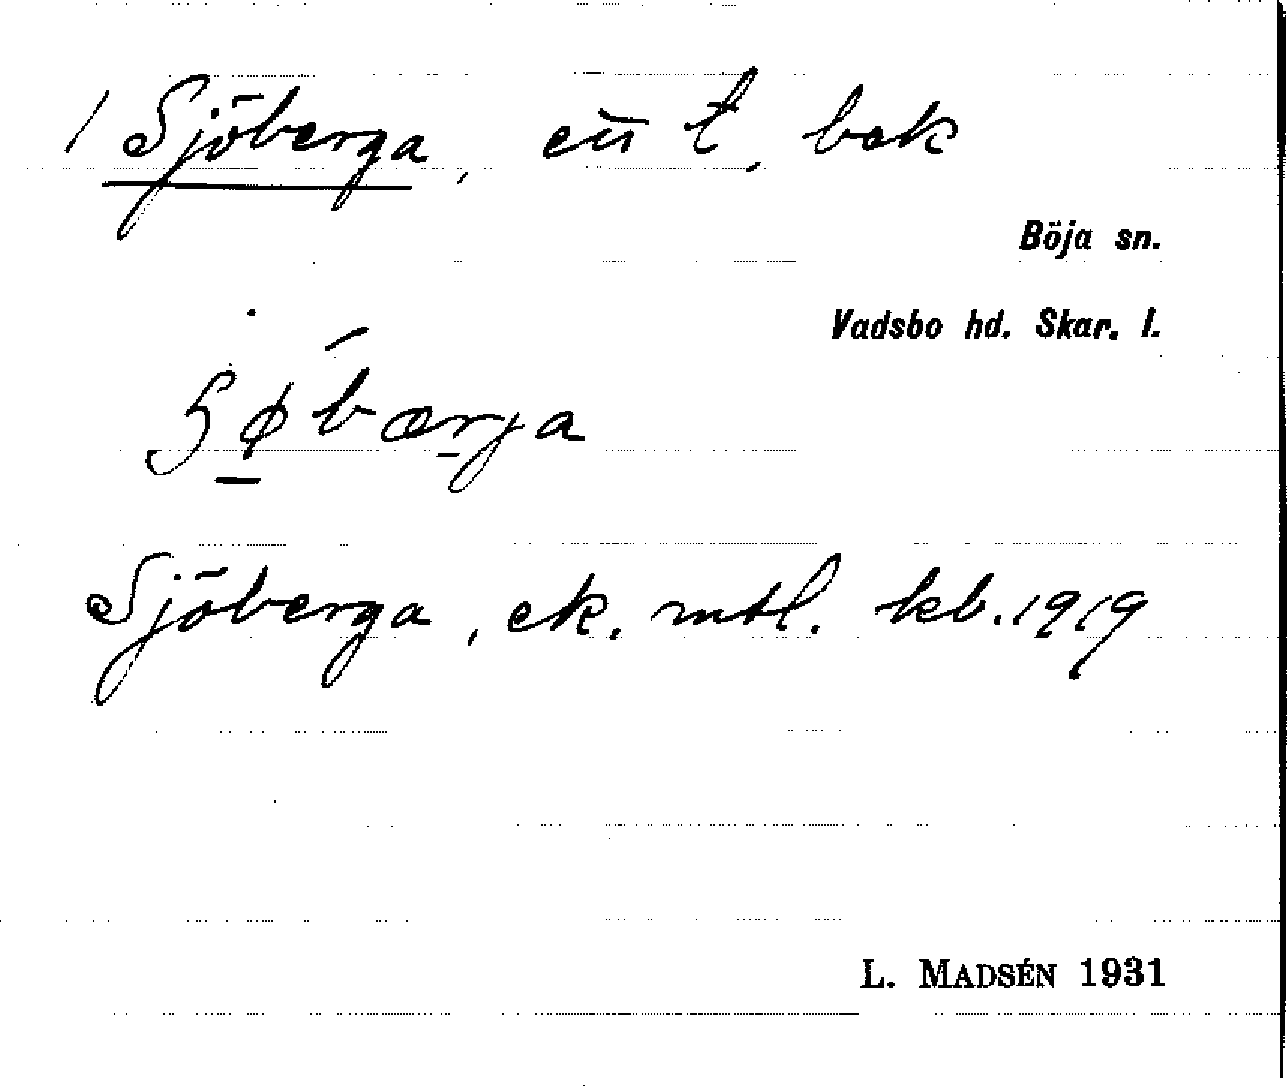 1 Sjöberga, en t. bek
Böja sn.
Vadsbo hd. Skar. l.
Sjöberga, ek. mtl. kb. 1919
L. MADSÉN 1931